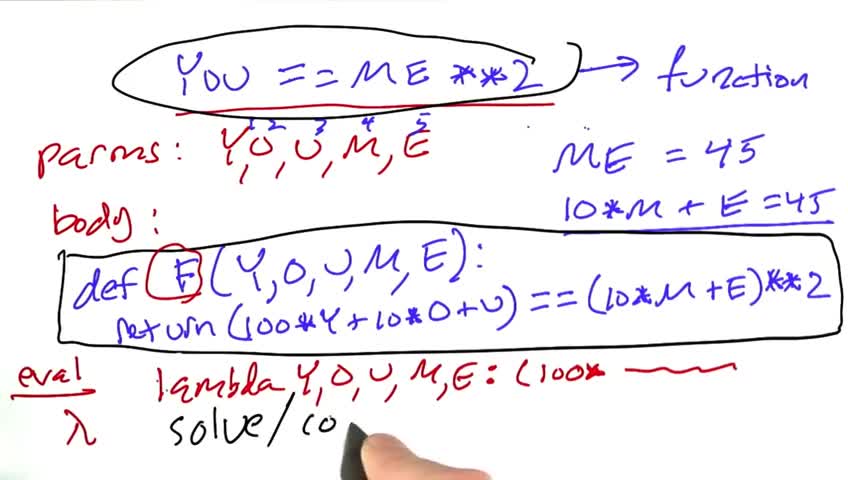 YOU == ME **2 → function
parms: Y, O, U, M, E
1 2 3 4 5
ME = 45
10*M + E = 45
body:
def F(Y, O, U, M, E):
return (100*Y+10*O+U) == (10*M+E)**2
eval lambda Y, O, U, M, E: (100*
λ solve/co